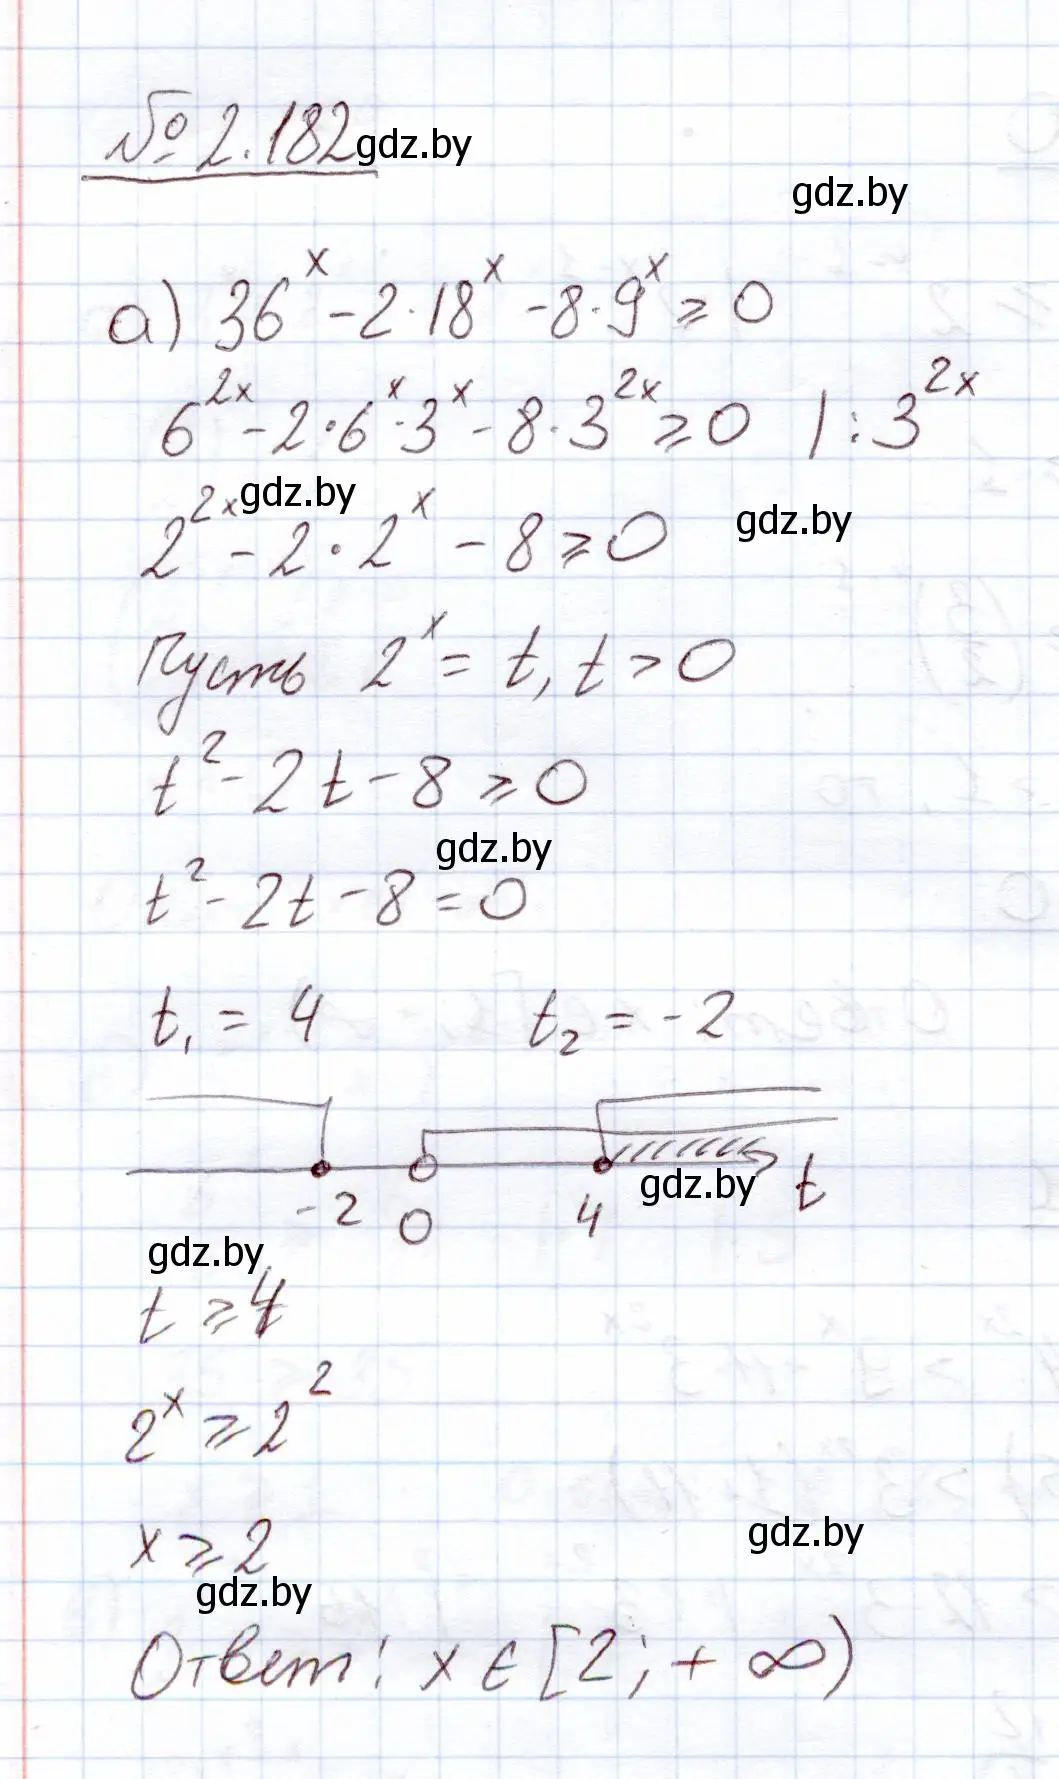 № 2.182 gdz.by
gdz.by
а) 36^x - 2·18^x - 8·9^x ⩾ 0
6^{2x} - 2·6^x·3^x - 8·3^{2x} ⩾ 0 | : 3^{2x}
gdz.by
2^{2x} - 2·2^x - 8 ⩾ 0
gdz.by
Пусть 2^x = t, t > 0
t^2 - 2t - 8 ⩾ 0
gdz.by
t^2 - 2t - 8 = 0
t_1 = 4 t_2 = -2
gdz.by t
-2 0 4
gdz.by
t ⩾ 4
2^x ⩾ 2^2
x ⩾ 2
gdz.by
gdz.by
Ответ: x ∈ [2; +∞)